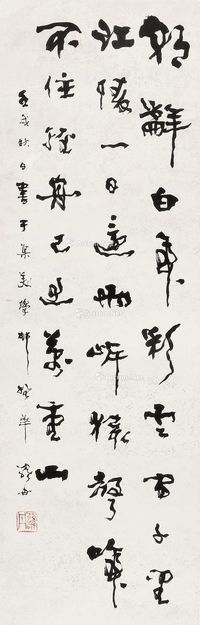 朝辭白帝彩雲間千里
江陵一日還兩岸猿聲啼
不住輕舟已過萬重山
秋日書于集美學村